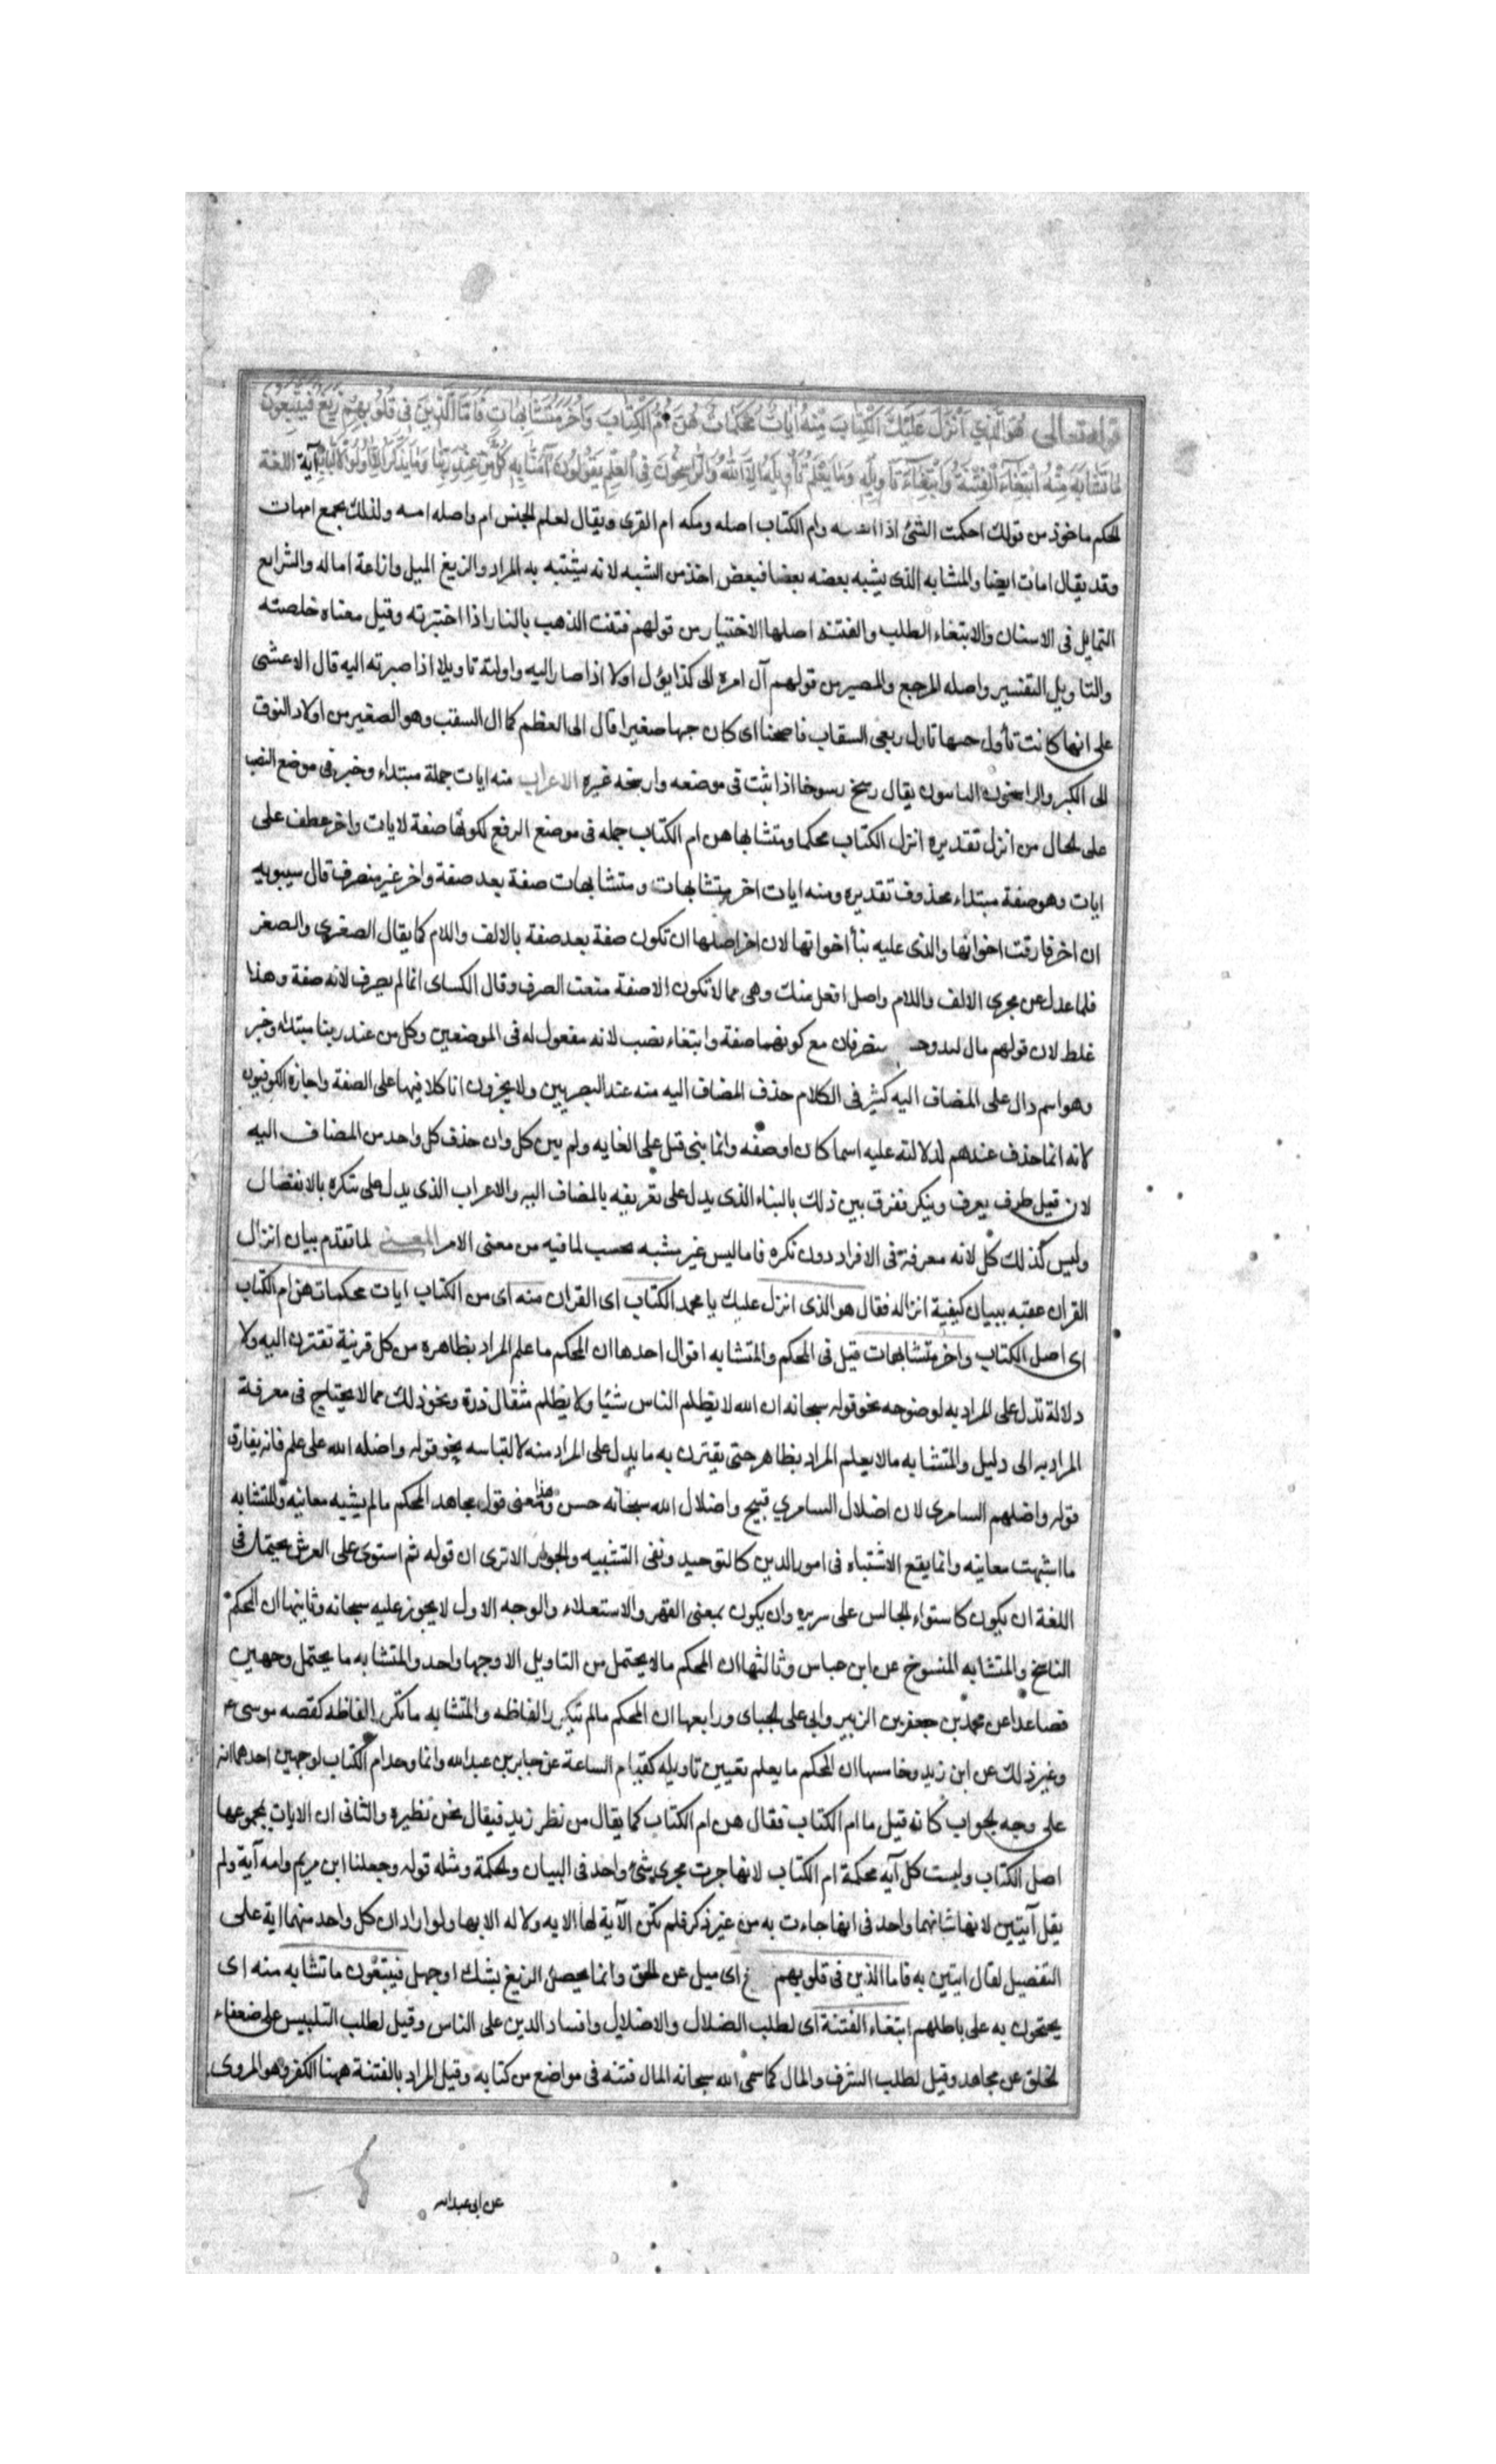 قوله تعالى هُوَ الَّذِي أَنْزَلَ عَلَيْكَ الْكِتَابَ مِنْهُ آيَاتٌ مُحْكَمَاتٌ هُنَّ أُمُّ الْكِتَابِ وَأُخَرُ مُتَشَابِهَاتٌ فَأَمَّا الَّذِينَ فِي قُلُوبِهِمْ زَيْغٌ فَيَتَّبِعُونَ
مَا تَشَابَهَ مِنْهُ ابْتِغَاءَ الْفِتْنَةِ وَابْتِغَاءَ تَأْوِيلِهِ وَمَا يَعْلَمُ تَأْوِيلَهُ إِلَّا اللَّهُ وَالرَّاسِخُونَ فِي الْعِلْمِ يَقُولُونَ آمَنَّا بِهِ كُلٌّ مِنْ عِنْدِ رَبِّنَا وَمَا يَذَّكَّرُ إِلَّا أُولُو الْأَلْبَابِ آية اللغة
المحكم ماخوذ من قولك احكمت الشئ اذا وام الكتاب اصله ومكه ام القرى ويقال لعلم الجيش ام واصله امهه ولذلك يجمع امهات
وقد يقال امات ايضا والمتشابه الذى يشبه بعضه بعضا فيغمض اخذ من الشبه لانه يشتبه به المراد والزيغ الميل وازاغة اماله والتزايغ
التمايل فى الاسنان والابتغاء الطلب والفتنه اصلها الاختبار من قولهم فتنت الذهب بالنار اذا اختبرته وقيل معناه خلصته
والتاويل التفسير واصله المرجع والمصير من قولهم آل امره الى كذا يؤل اولا اذا صار اليه واولته تاويلا اذا صيرته اليه قال الاعشى
على انها كانت تأول حبها تاول ربعى السقاب فاصحبا اى كان حبها صغيرا فال الى العظم كما ال السقب وهو الصغير من اولاد النوق
الى الكبر والراسخون الثابتون يقال رسخ رسوخا اذا ثبت فى موضعه وارسخه غيره الاعراب منه ايات جملة مبتداء وخبر فى موضع النصب
على الحال من انزل تقديره انزل الكتاب محكما ومتشابها هن ام الكتاب جمله فى موضع الرفع لكونها صفة لايات واخر عطف على
ايات وهو صفة مبتداء محذوف تقديره ومنه ايات اخر متشابهات ومتشابهات صفة بعد صفة واخر غير منصرف قال سيبويه
ان اخر فارقت اخواتها والذى عليه بنأ اخواتها لان اخر اصلها ان تكون صفة بعد صفة بالالف واللام كما يقال الصغرى والصغر
فلما عدل عن مجرى الالف واللام واصل افعل منك وهى مما لا تكون الا صفة منعت الصرف وقال الكساى انما لم يصرف لانه صفة وهذا
غلط لان قولهم مال لبد منصرفان مع كونهما صفة وابتغاء نصب لانه مفعول له فى الموضعين وكل من عند ربنا مبتداء وخبر
وهو اسم دال على المضاف اليه كثير فى الكلام حذف المضاف اليه منه عند البصريين ولا يجيزون انا كلا فيها على الصفة واجازه الكوفيون
لانه انما حذف عندهم لدلالته عليه اسما كان او صفه وانما بنى قبل على الغايه ولم يبن كل وان حذف كل واحد من المضاف اليه
لان قبل ظرف يعرف وينكر ففرق بين ذلك بالبناء الذى يدل على تعريفه بالمضاف اليه والاعراب الذى يدل على تنكره بالانفصال
وليس كذلك كل لانه معرفة فى الافراد دون نكره فاما ليس غير مشبه بحسب لما فيه من معنى الامر المعنى لما تقدم بيان انزال
القران عقبه ببيان كيفية انزاله فقال هو الذى انزل عليك يا محمد الكتاب اى القران منه اى من الكتاب ايات محكمات هن ام الكتاب
اى اصل الكتاب واخر متشابهات قيل فى المحكم والمتشابه اقوال احدها ان المحكم ما علم المراد بظاهره من كل قرينة تقترن اليه ولا
دلالة تدل على المراد به لوضوحه نحو قوله سبحانه ان الله لا يظلم الناس شيئا ولا يظلم مثقال ذرة ونحو ذلك مما لا يحتاج فى معرفة
المراد به الى دليل والمتشابه مالا يعلم المراد بظاهره حتى يقترن به ما يدل على المراد منه لالتباسه نحو قوله واضله الله على علم فانه يفارق
قوله واضلهم السامرى لان اضلال السامرى قبيح واضلال الله سبحانه حسن وهذا معنى قول مجاهد المحكم مالم يشبه معانيه والمتشابه
ما اشبهت معانيه وانما يقع الاشتباه فى امور الدين كالتوحيد ونفى التشبيه والجور الا ترى ان قوله ثم استوى على العرش يحتمل فى
اللغة ان يكون كاستواء الجالس على سريره وان يكون بمعنى القهر والاستعلاء والوجه الاول لا يجوز عليه سبحانه وثانيها ان المحكم
الناسخ والمتشابه المنسوخ عن ابن عباس وثالثها ان المحكم مالا يحتمل من التاويل الا وجها واحد والمتشابه ما يحتمل وجهين
فصاعدا عن محمد بن جعفر بن الزبير وابى على الجباى ورابعها ان المحكم مالم تتكرر الفاظه والمتشابه ما تكرر الفاظه كقصه موسى ع
وغير ذلك عن ابن زيد وخامسها ان المحكم ما يعلم تعيين تاويله كقيام الساعة عن جابر بن عبدالله وانما وحد ام الكتاب لوجهين احدهما انه
على وجه الجواب كانه قيل ما ام الكتاب فقال هن ام الكتاب كما يقال من نظر زيد فيقال نحن نظيره والثانى ان الايات بمجموعها
اصل الكتاب وليست كل آيه محكمة ام الكتاب لانها جرت مجرى شئ واحد فى البيان والحكمة ومثله قوله وجعلنا ابن مريم وامه آية ولم
يقل آيتين لانها شانهما واحد فى انها جاءت به من غير ذكر فلم تكن الآية لها الا به ولا له الا بها ولو اراد ان كل واحد منهما اية على
التفصيل لقال ايتين به فاما الذين فى قلوبهم اى ميل عن الحق وانما يحصل الزيغ بشك او جهل فيتبعون ما تشابه منه اى
يحتجون به على باطلهم ابتغاء الفتنة اى لطلب الضلال والاضلال وافساد الدين على الناس وقيل لطلب التلبيس على ضعفاء
الخلق عن مجاهد وقيل لطلب الشرف والمال كما سمى الله سبحانه المال فتنه فى مواضع من كتابه وقيل المراد بالفتنة ههنا الكفر وهو المروى
عن ابى عبدالله